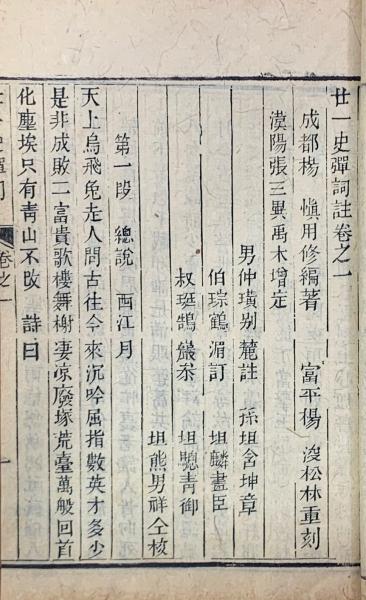 廿一史彈詞註卷之一
成都楊 慎用修編著 富平楊 浚松林重刻
漢陽張三異禹木增定
男仲璜别麓註 孫坦含坤章
伯琮鶴湄訂 坦麟畫臣
叔珽鵠巖叅 坦驄青御
坦熊男祥仝校
第一段 總說 西江月
天上烏飛兔走人間古往今來沉吟屈指數英才多少
是非成敗 富貴歌樓舞榭 凄凉廢塚荒臺萬般回首
化塵埃只有青山不改 詩曰
卷之一
一